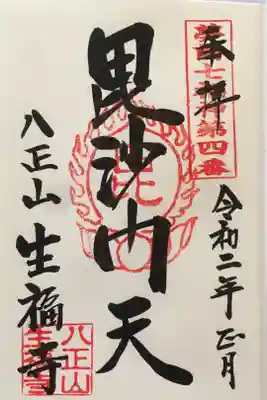 奉拝
第七番第四番
令和二年正月
毘沙門天
八正山 生福寺
八正山
生福寺